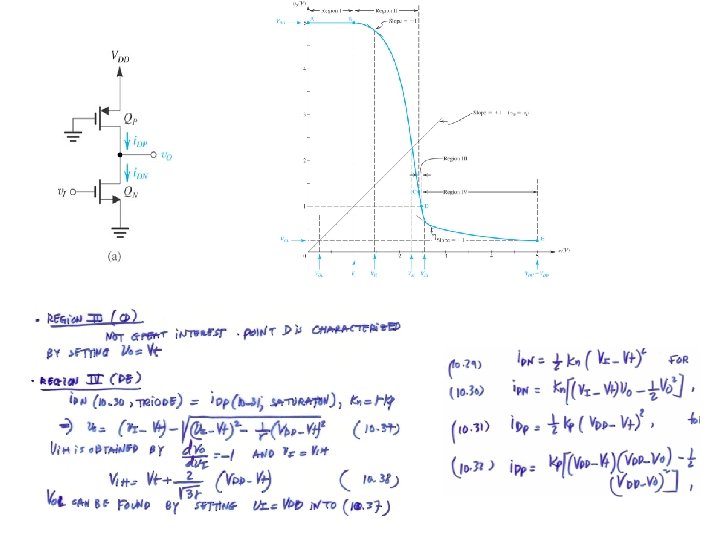 V_DD
Q_P
i_DP
v_O
i_DN
v_I
Q_N
(a)
v_O(V)
Region I
Region II
V_OH
5
A
B
Slope = −1
4
3
Slope = +1
2
Region III
C
Region IV
1
D
Slope = −1
V_OL
E
0
2
3
4
5
v_I(V)
V_IL
V_IH
V_OH = V_DD
· REGION III (CD)
NOT GREAT INTEREST. POINT D IS CHARACTERIZED
BY SETTING V_O = V_t
· REGION IV (DE)
i_DN (10.30, TRIODE) = i_DP (10.31, SATURATION), K_n = r K_p
⇒ V_O = (V_I − V_t) − √((V_I − V_t)² − 1/r (V_DD − V_t)²) (10.37)
V_IH IS OBTAINED BY dV_O/dV_I = −1 AND V_I = V_IH
V_IH = V_t + 2/√(3r) (V_DD − V_t) (10.38)
V_OL CAN BE FOUND BY SETTING V_I = V_DD INTO (10.37)
(10.29) i_DN = ½ K_n (V_I − V_t)² FOR
(10.30) i_DN = K_n [(V_I − V_t) V_O − ½ V_O²],
(10.31) i_DP = ½ K_P (V_DD − V_t)²,
(10.32) i_DP = K_P [(V_DD − V_t)(V_DD − V_O) − ½
(V_DD − V_O)²],